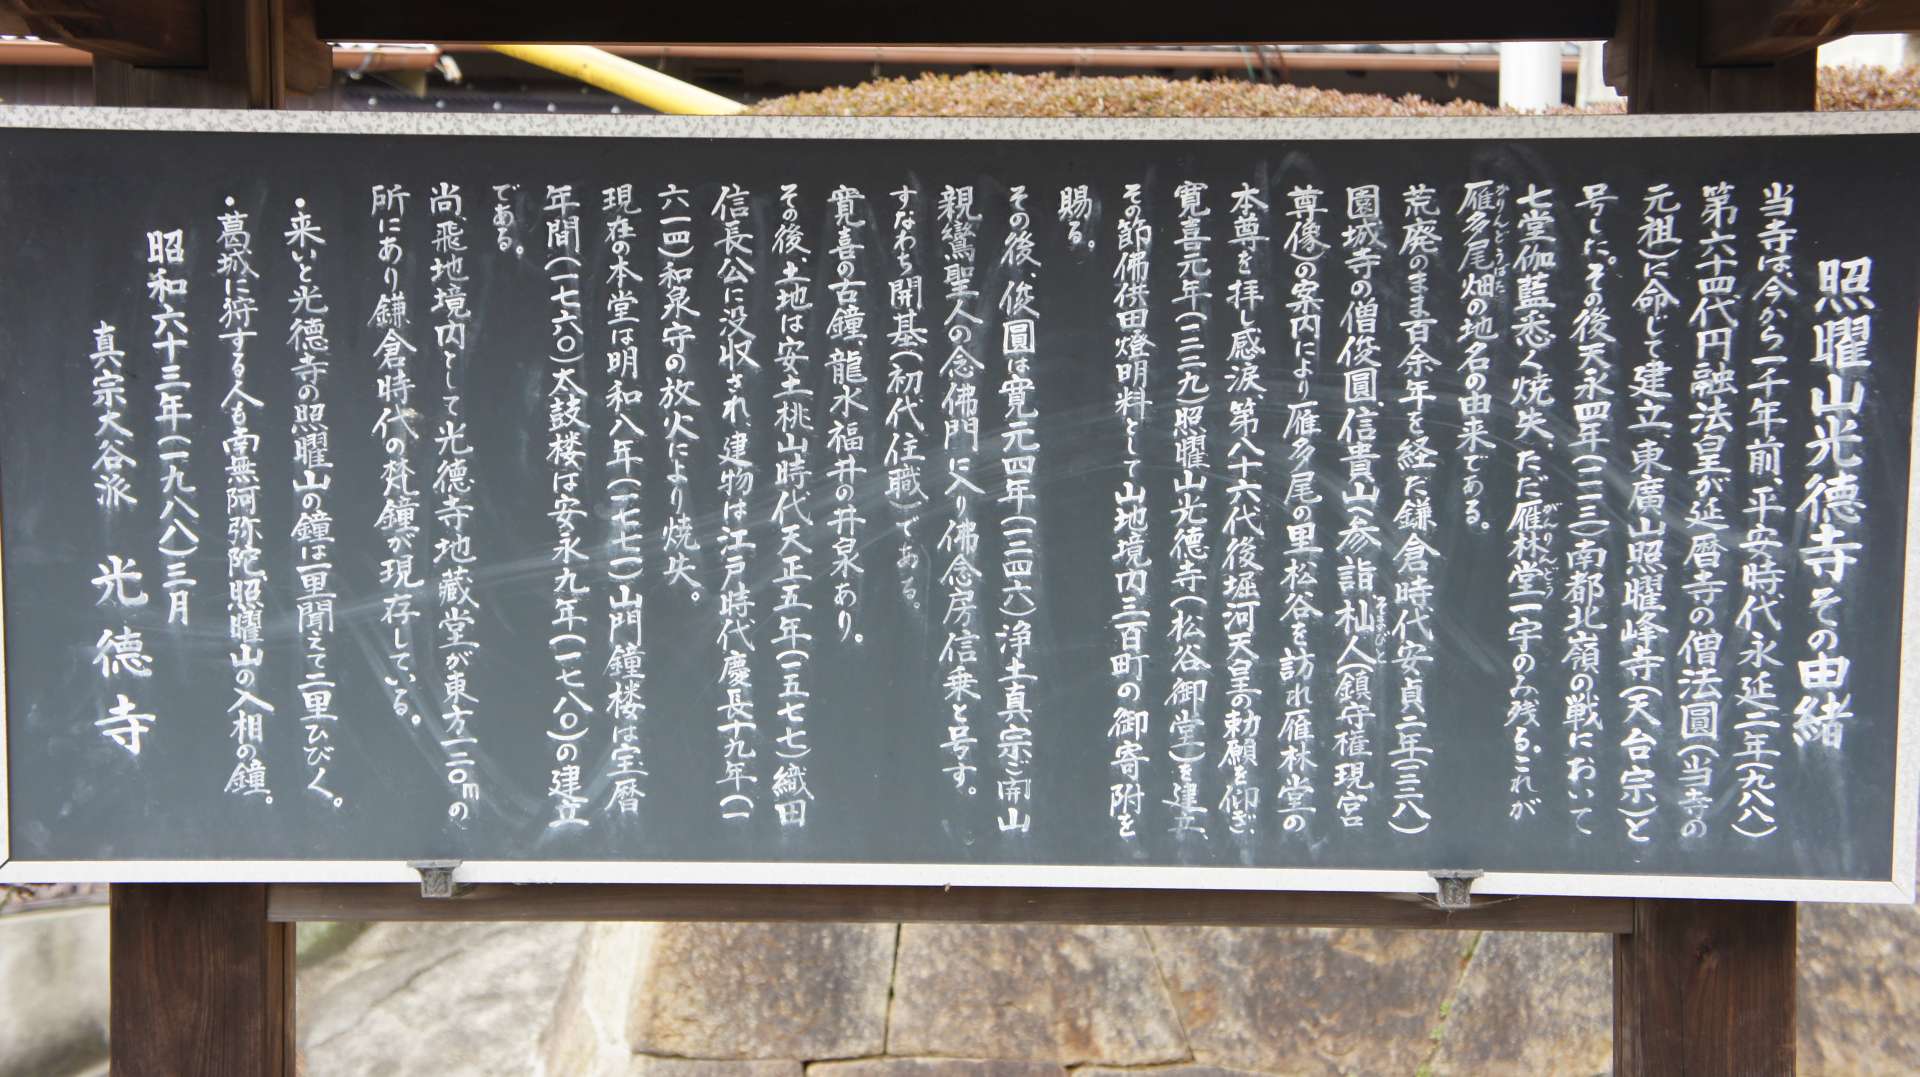 照曜山光徳寺その由緒
当寺は今から一千年前、平安時代永延二年(九八八)
第六十四代円融法皇が延暦寺の僧法圓(当寺の
元祖)に命じて建立、東廣山照曜峰寺(天台宗)と
号した。その後天永四年(一一一三)南都北嶺の戦において
七堂伽藍悉く焼失、ただ雁林堂一宇のみ残る。これが
雁多尾畑の地名の由来である。
荒廃のまま百余年を経た鎌倉時代安貞二年(一二二八)
園城寺の僧俊圓、信貴山へ参詣杣人(鎮守権現宮
尊像)の案内により雁多尾の里松谷を訪れ雁林堂の
本尊を拝し感涙、第八十六代後堀河天皇の勅願を仰ぎ、
寛喜元年(一二二九)照曜山光徳寺(松谷御堂)を建立、
その節佛供田燈明料として山地境内三百町の御寄附を
賜る。
その後、俊圓は寛元四年(一二四六)浄土真宗ご開山
親鸞聖人の念佛門に入り佛念房信乗と号す。
すなわち開基(初代住職)である。
寛喜の古鐘、龍水福井の井泉あり。
その後、土地は安土桃山時代天正五年(一五七七)織田
信長公に没収され、建物は江戸時代慶長十九年(一
六一四)和泉守の放火により焼失。
現在の本堂は明和八年(一七七一)山門鐘楼は宝暦
年間(一七六〇)太鼓楼は安永九年(一七八〇)の建立
である。
尚、飛地境内として光徳寺地蔵堂が東方一二〇mの
所にあり鎌倉時代の梵鐘が現存している。
・来いと光徳寺の照曜山の鐘は一里聞えて二里ひびく。
・葛城に狩する人も南無阿弥陀照曜山の入相の鐘。
昭和六十三年(一九八八)三月
真宗大谷派　光徳寺